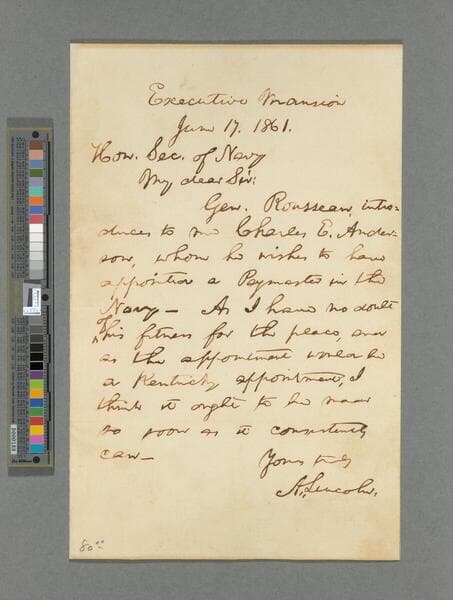 Executive Mansion
June 17. 1861.
Hon. Sec. of Navy
My dear Sir:
Gen. Rousseau, intro-
duces to me Charles E. Ander-
son, whom he wishes to have
appointed a Paymaster in the
Navy— As I have no doubt
of his fitness for the place, and
as the appointment would be
a Kentucky appointment, I
think it ought to be made
so soon as it consistently
can—
Yours truly
A. Lincoln.
80⁰⁰